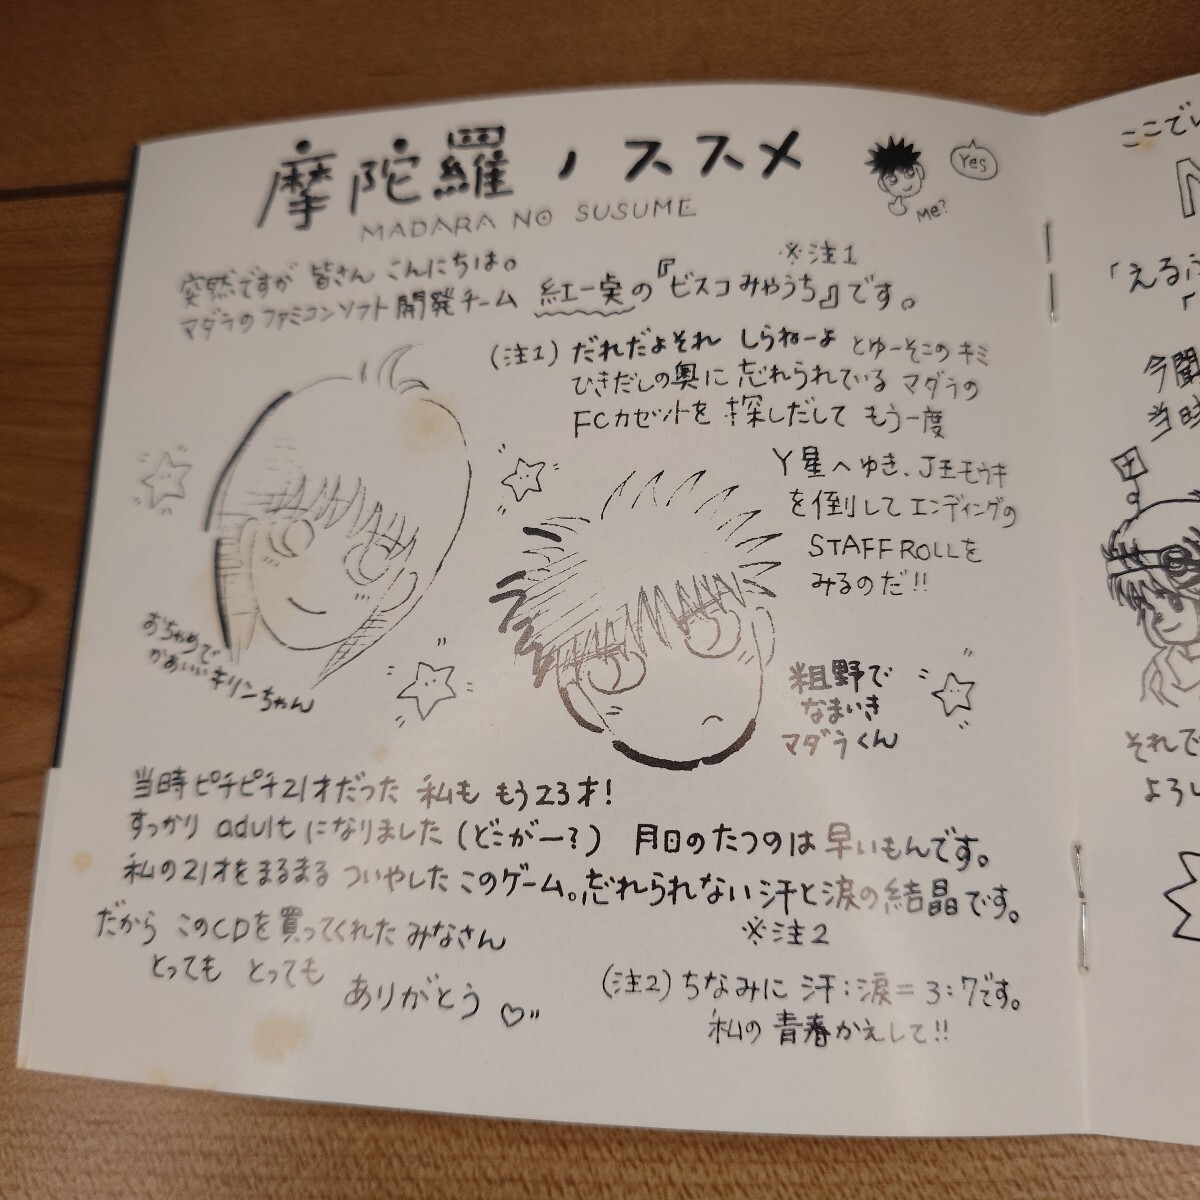 摩陀羅ノススメ
MADARA NO SUSUME
Yes
Me?
突然ですが 皆さん こんにちは。
※注1
マダラのファミコンソフト開発チーム 紅一実の『ビスコみやうち』です。
(注1) だれだよそれ しらねーよ とゆーそこのキミ
ひきだしの奥に 忘れられている マダラの
FCカセットを 探しだして もう一度
Y星へゆき、J王モウキ
を倒して エンディングの
STAFF ROLLを
みるのだ!!
おちゃめで
かあいいキリンちゃん
粗野で
なまいき
マダラくん
当時ピチピチ21才だった 私も もう23才!
すっかり adult になりました (どこがー?) 月日のたつのは 早いもんです。
私の21才をまるまる ついやした このゲーム。忘れられない 汗と涙の結晶です。
※注2
だから このCDを買ってくれた みなさん
とっても とっても
ありがとう ♡"
(注2) ちなみに 汗:涙=3:7です。
私の 青春かえして!!
ここでい
「えるふ
「
今聞
当時
それで
よろし